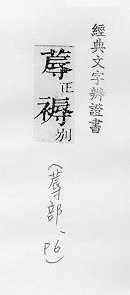 經典文字辨證書
蓐正
褥別
(蓐部、P6)